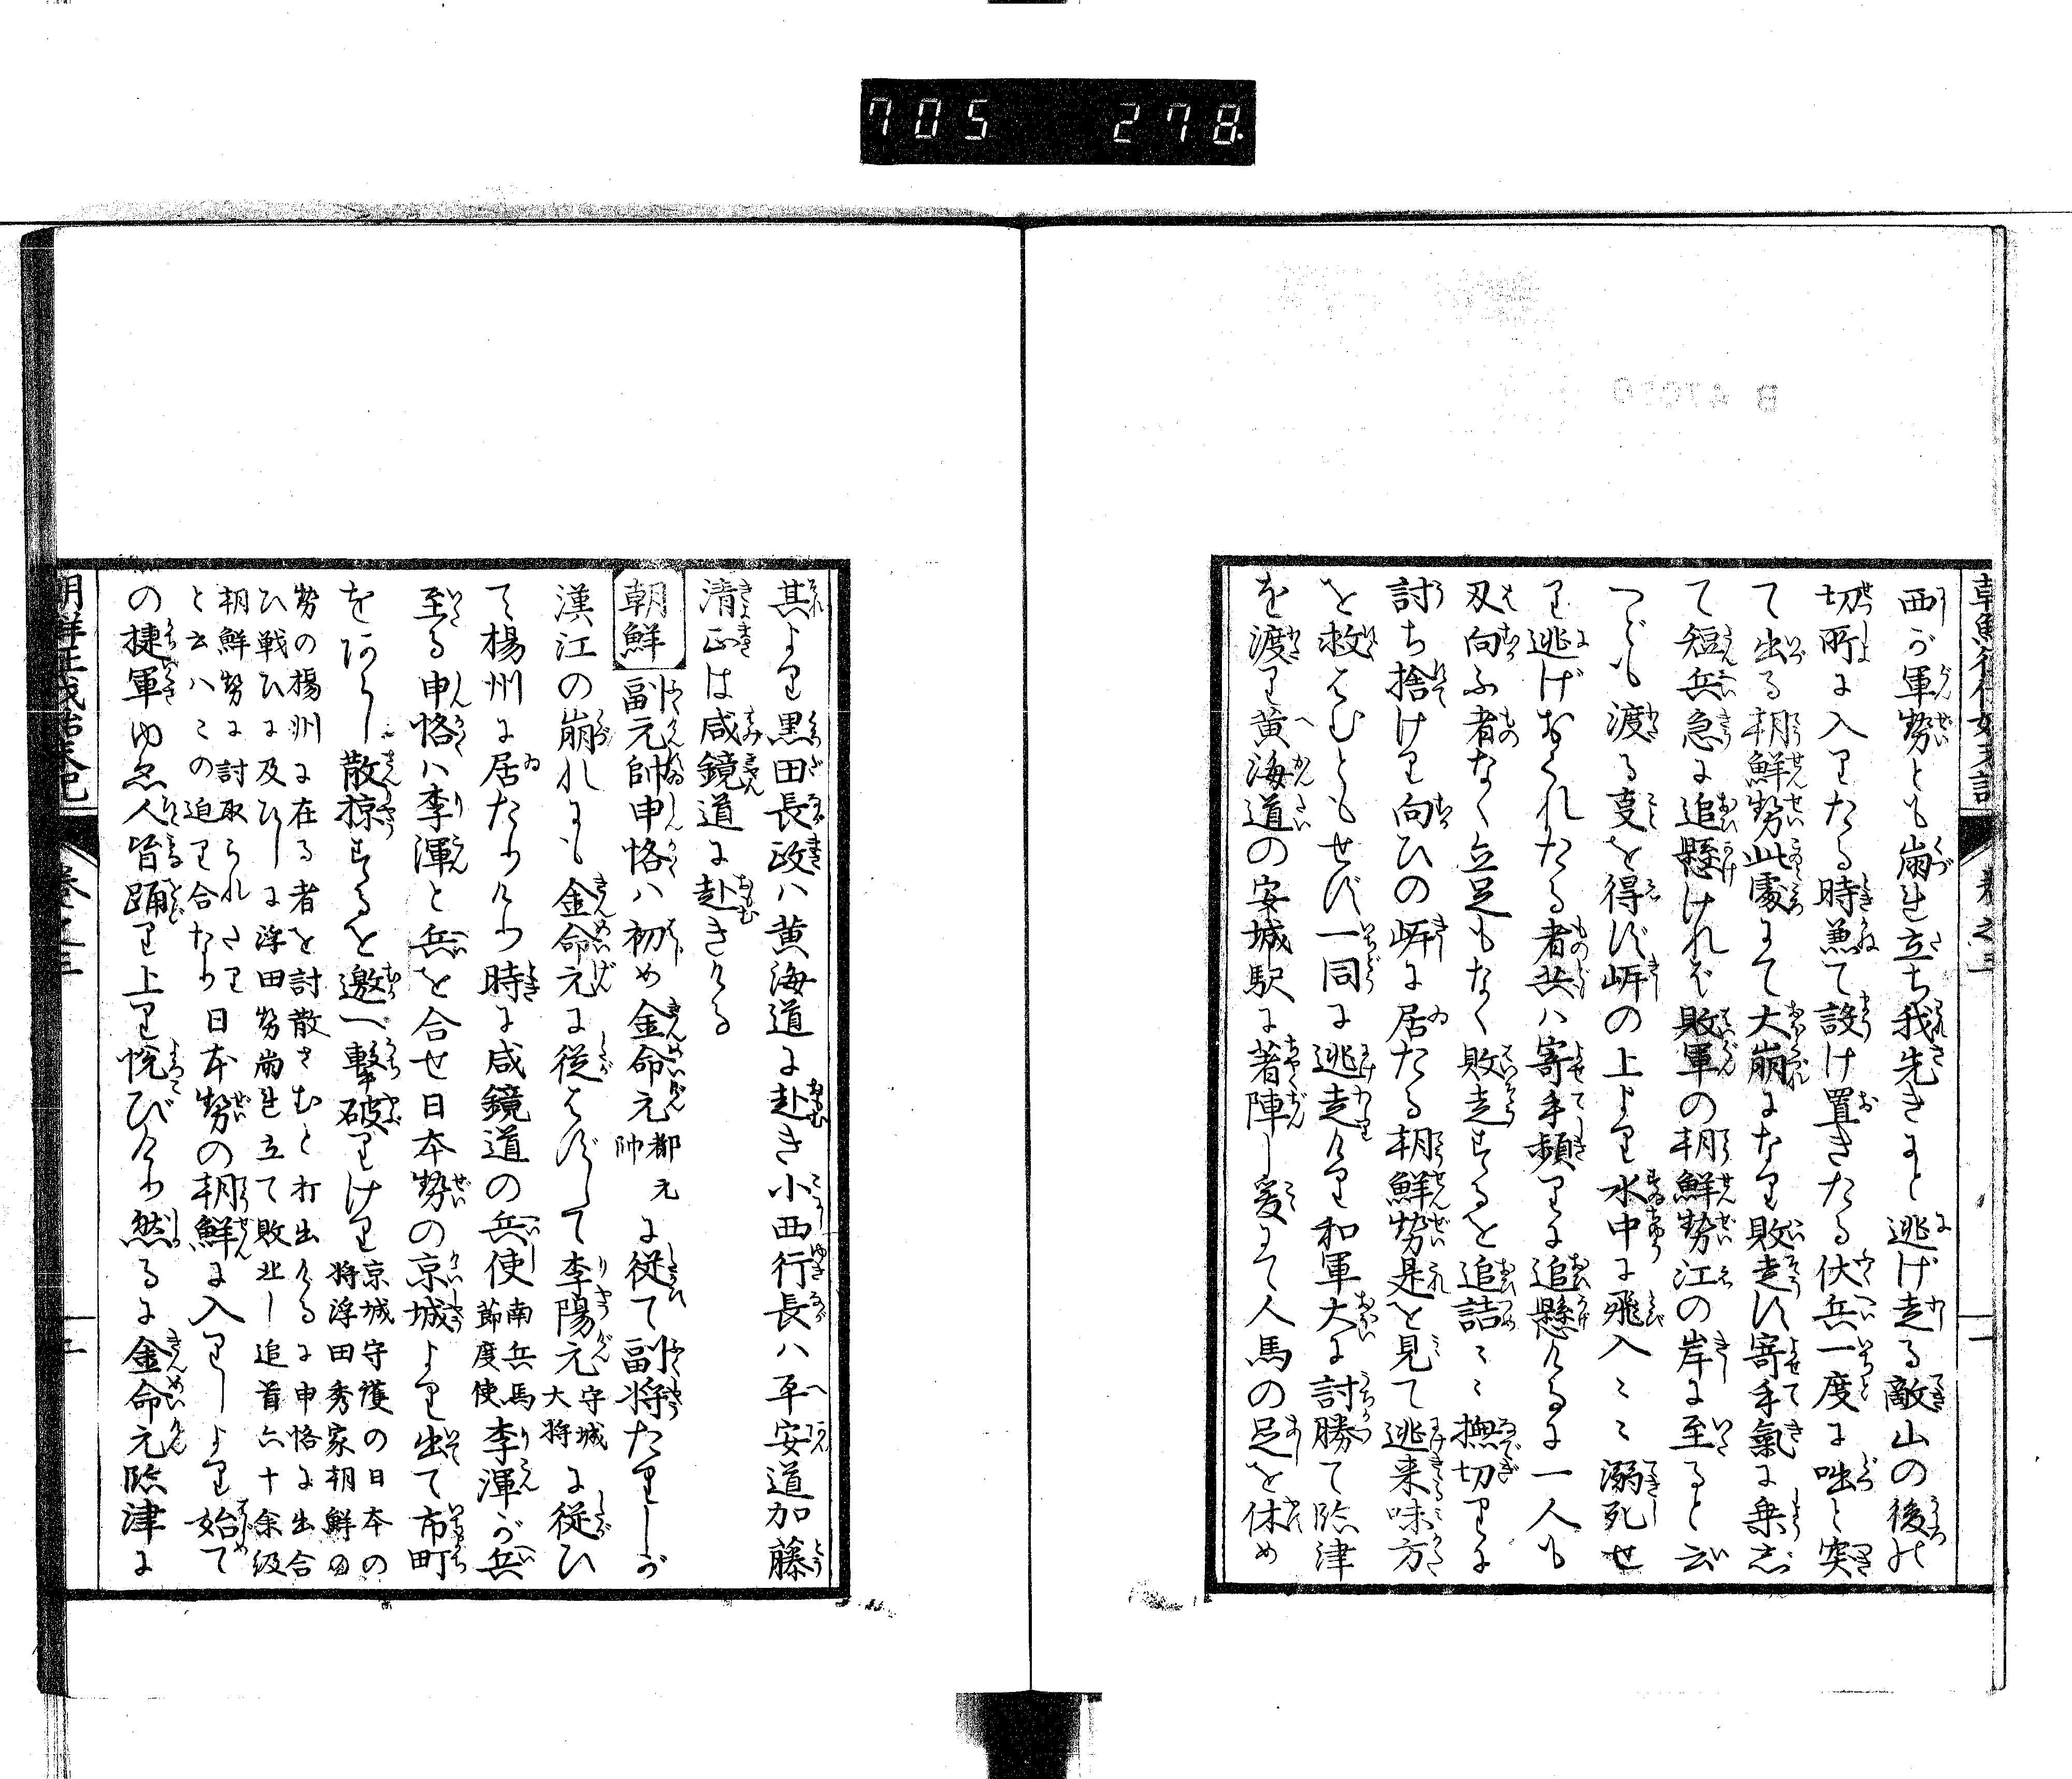 705 278
西が軍勢とも崩れ立ち我先きにと逃げ走る敵山の後の
切所に入りたる時兼て設け置きたる伏兵一度に咄と突
て出る朝鮮勢此處にて大崩になり敗走す寄手氣に乗じ
て短兵急に追懸けれバ敗軍の朝鮮勢江の岸に至ると云
つども渡る事を得ず岍の上より水中に飛入〻〻溺死せ
り逃げおくれたる者共ハ寄手頻りに追懸けるに一人も
刃向ふ者なく立足もなく敗走するを追詰〻〻撫切りに
討ち捨けり向ひの岍に居たる朝鮮勢是を見て逃来味方
を救はむともせず一同に逃走けり和軍大に討勝て臨津
を渡り黄海道の安城駅に著陣し爰にて人馬の足を休め
其より黒田長政ハ黄海道に赴き小西行長ハ平安道加藤
清正は咸鏡道に赴きける
朝鮮 副元帥申恪ハ初め金命元都元帥に従て副将たりしが
漢江の崩れにも金命元に従はずして李陽元守城大将に従ひ
て楊州に居たりける時に咸鏡道の兵使南兵馬節度使李渾が兵
至る申恪ハ李渾と兵を合せ日本勢の京城より出て市町
を散掠するを邀へ撃破りけり京城守護の日本の
将浮田秀家朝鮮の
勢の楊州に在る者を討散さむと打出けるに申恪に出合
ひ戦ひに及びしに浮田勢崩れ立て敗北し追首六十余級
朝鮮勢に討取られたり
と云ハこの迫り合なり日本勢の朝鮮に入りしより始て
の捷軍ゆゑ人皆踊り上り悦びけり然るに金命元臨津に